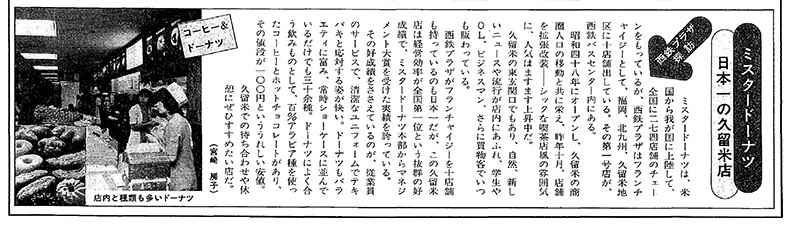 ミスタードーナツ
日本一の久留米店
西鉄プラザ
探訪
ミスタードーナツは、米
国から我が国に上陸して、
全国に二七四店舗のチェー
ンをもっているが、西鉄プラザはフランチ
ャイジーとして、福岡、北九州、久留米地
区に十店舗出している。その第一号店が、
西鉄バスセンター内にある。
昭和四十八年にオープンし、久留米の商
圏人口の移動と共に栄え、昨年十月、店舗
を拡張改装――シックな喫茶店風の雰囲気
に、人気はますます上昇中だ。
久留米の東玄関口でもあり、自然、新し
いニュースや流行が店内にあふれ、学生や
OL、ビジネスマン、さらに買物客でいつ
も賑わっている。
西鉄プラザがフランチャイジーを十店舗
も持っているのも日本一だが、この久留米
店は経営効率が全国第一位という抜群の好
成績で、ミスタードーナツ本部からマネジ
メント大賞を受けた実績を誇っている。
その好成績をささえているのが、従業員
のサービスで、清潔なユニフォームでテキ
パキと応対する姿が快い。ドーナツもバラ
エティに富み、常時ショーケースに並んで
いるだけでも三十余種。ドーナツによく合
う飲みものとして、百%アラビア種を使っ
たコーヒーとホットチョコレートがあり、
その値段が一〇〇円といううれしい安値。
久留米での待ち合わせや休
憩にぜひすすめたい店だ。
（宮崎 房子）
コーヒー&
ドーナツ
店内と種類も多いドーナツ